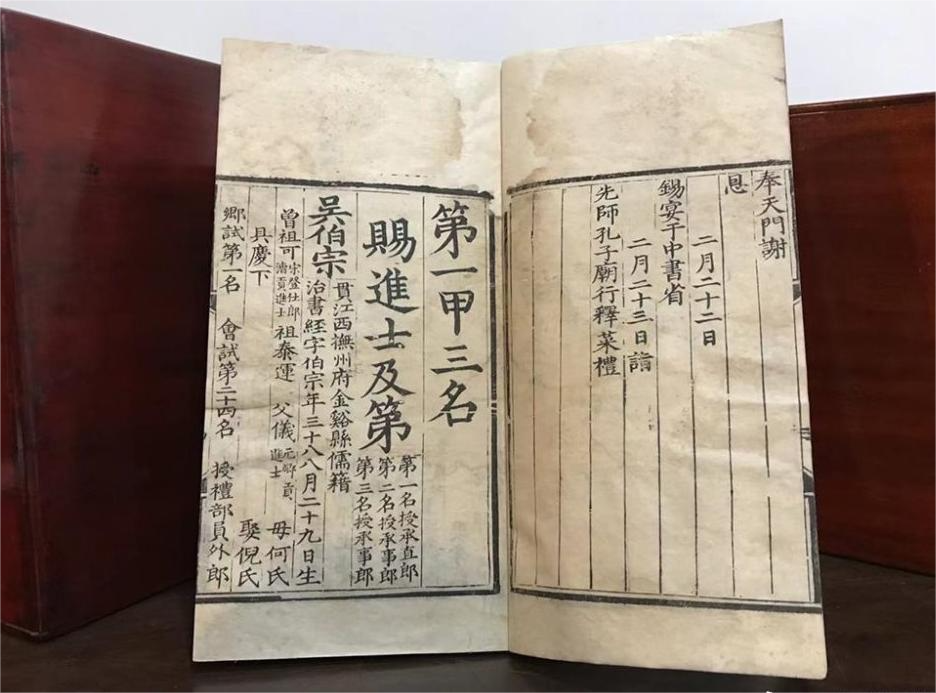 奉天門謝
恩
二月二十二日
錫宴于中書省
二月二十三日詣
先師孔子廟行釋菜禮
第一甲三名
賜進士及第
第一名授承直郎
第二名授承事郎
第三名授承事郎
吳伯宗
貫江西撫州府金谿縣儒籍
治書經字伯宗年三十八八月二十九日生
曾祖可 宋登仕郎 漕貢進士 祖泰運 父儀 元鄉貢進士 母何氏
具慶下 娶倪氏
鄉試第一名 會試第二十四名 授禮部員外郎